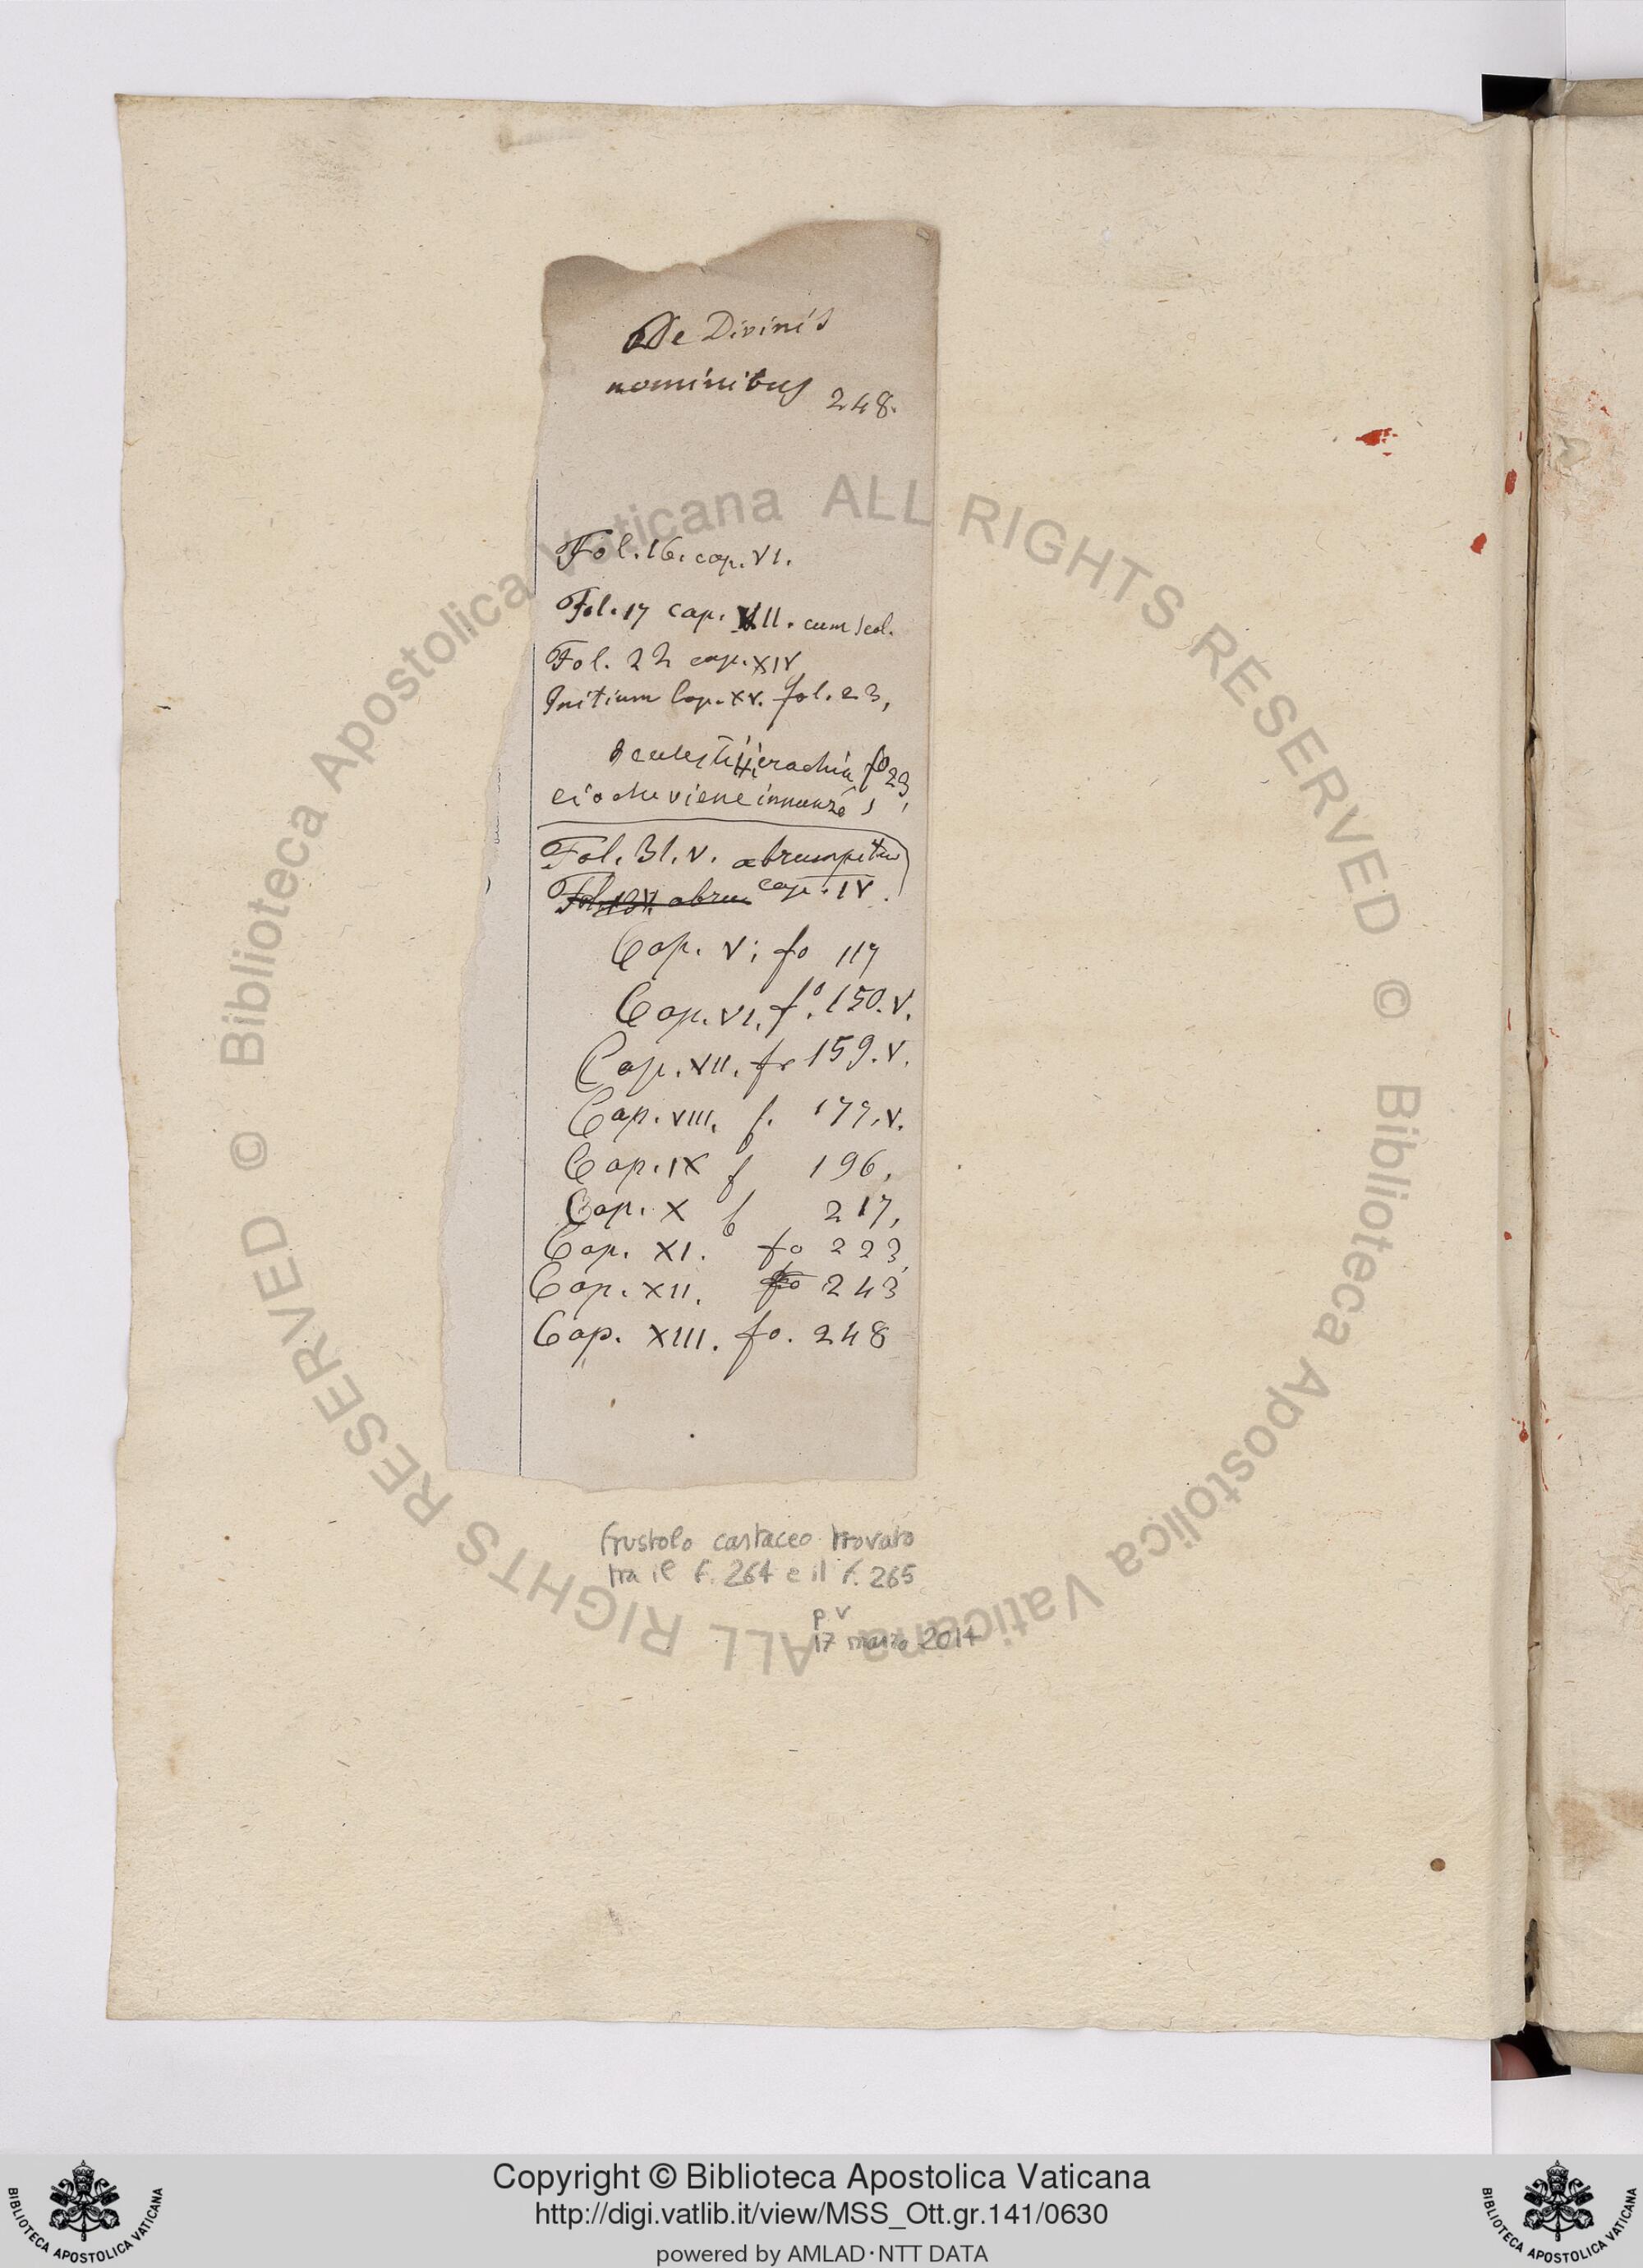 De Divinis
nominibus 248.
Fol. 16. cap. VI.
Fol. 17 cap. VII. cum scol.
Fol. 22 cap. XIV
Initium Cap. XV. fol. 23,
Hierachia fo 23,
ciò che viene innanzi
Fol. 31. v. abrumpitur
cap. IV.
Cap. V; fo 117
Cap. VI. fº. 150. v.
Cap. VII. fo 159. v.
Cap. VIII. f. 177. v.
Cap. IX f 196.
Cap. X f 217,
Cap. XI. fo 223,
Cap. XII. fo 243
Cap. XIII. fo. 248
frustolo cartaceo trovato
tra il f. 264 e il f. 265
p v
17 marzo 2014
© Biblioteca Apostolica Vaticana ALL RIGHTS RESERVED
© Biblioteca Apostolica Vaticana ALL RIGHTS RESERVED
Copyright © Biblioteca Apostolica Vaticana
http://digi.vatlib.it/view/MSS_Ott.gr.141/0630
powered by AMLAD·NTT DATA
BIBLIOTECA APOSTOLICA VATICANA
BIBLIOTECA APOSTOLICA VATICANA